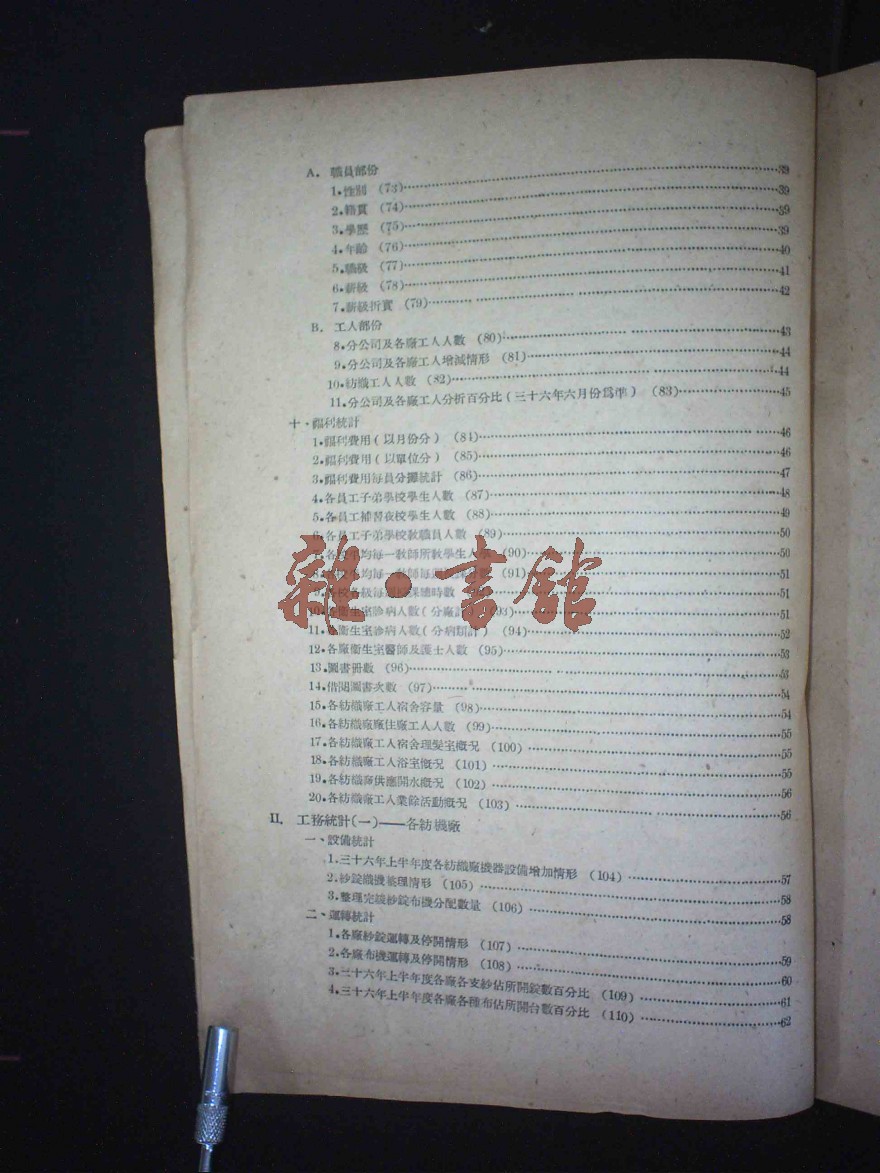 A. 職員部份……39
1.性別 (73)……39
2.籍貫 (74)……39
3.學歷 (75)……39
4.年齡 (76)……40
5.職級 (77)……41
6.薪級 (78)……42
7.薪級折實 (79)……
B. 工人部份
8.分公司及各廠工人人數 (80)……43
9.分公司及各廠工人增減情形 (81)……44
10.紡織工人人數 (82)……44
11.分公司及各廠工人分折百分比(三十六年六月份爲準) (83)……45
十、福利統計
1.福利費用(以月份分) (84)……46
2.福利費用(以單位分) (85)……46
3.福利費用每員分攤統計 (86)……47
4.各員工子弟學校學生人數 (87)……48
5.各員工補習夜校學生人數 (88)……49
6.各員工子弟學校教職員人數 (89)……50
均每一教師所教學生人 (90)……50
均每一教師每 (91)……51
各校各級每 課總時數……51
衞生室診病人數(分廠計 93)……51
11. 衞生室診病人數(分病類計) (94)……52
12.各廠衞生室醫師及護士人數 (95)……53
13.圖書冊數 (96)……53
14.借閱圖書次數 (97)……54
15.各紡織廠工人宿舍容量 (98)……54
16.各紡織廠廠住廠工人人數 (99)……55
17.各紡織廠工人宿舍理髮室概况 (100)……55
18.各紡織廠工人浴室概况 (101)……55
19.各紡織廠供應開水概况 (102)……56
20.各紡織廠工人業餘活動概况 (103)……56
II. 工務統計(一)——各紡機廠
一、設備統計
1.三十六年上半年度各紡織廠機器設備增加情形 (104)……57
2.紗錠織機整理情形 (105)……58
3.整理完竣紗錠布機分配數量 (106)……58
二、運轉統計
1.各廠紗錠運轉及停開情形 (107)……59
2.各廠布機運轉及停開情形 (108)……60
3.三十六年上半年度各廠各支紗佔所開錠數百分比 (109)……61
4.三十六年上半年度各廠各種布佔所開台數百分比 (110)……62
雜·書館